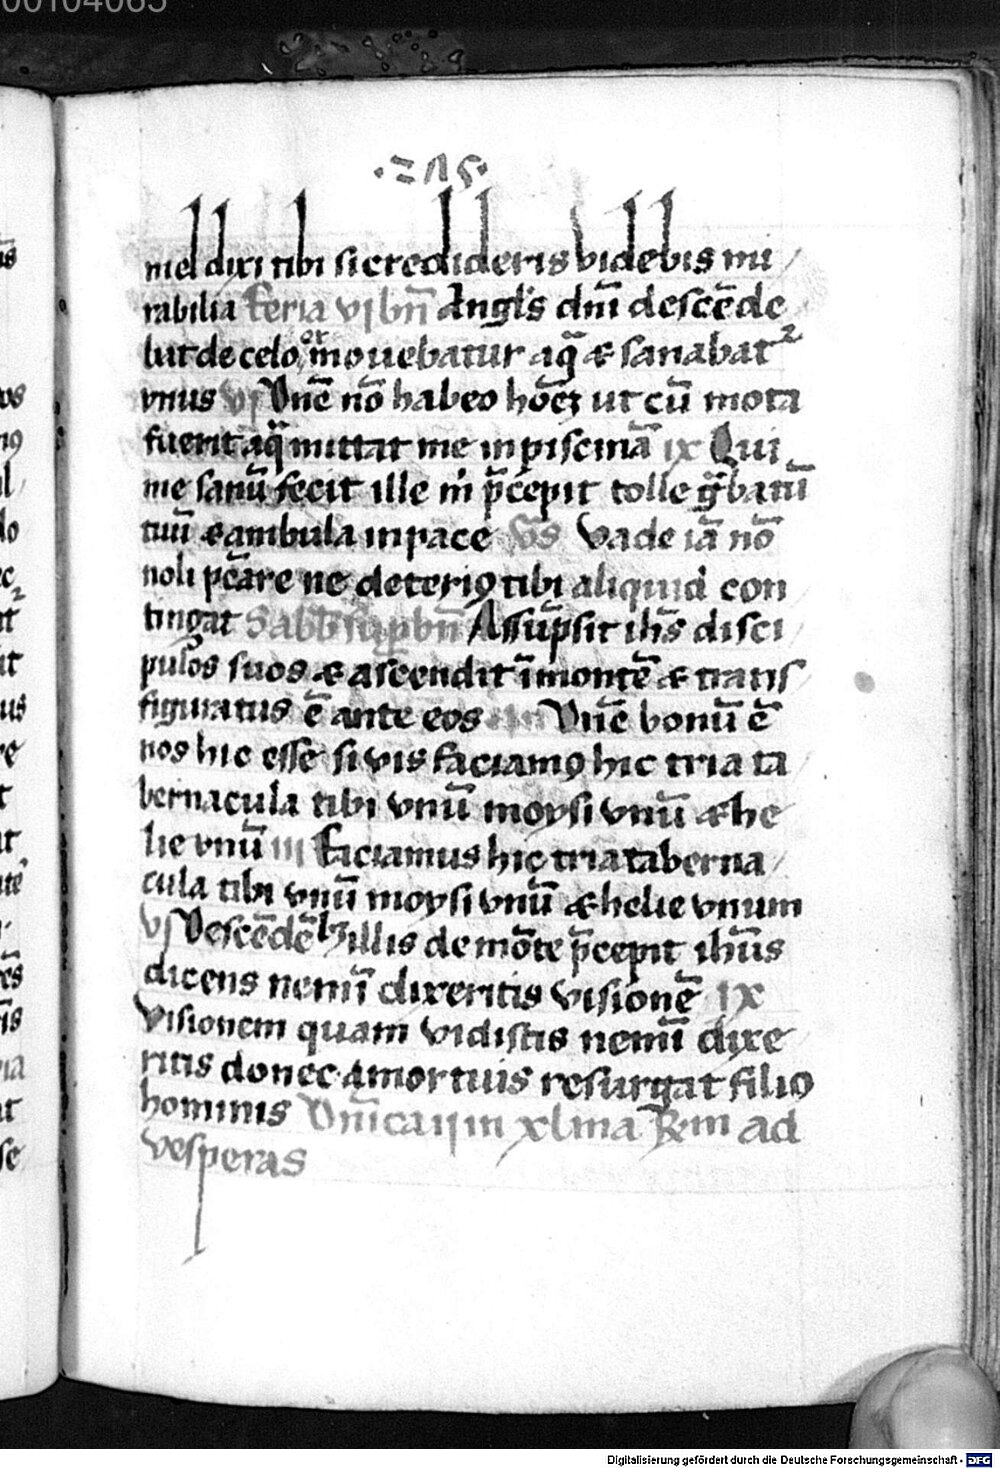 00104065
·215·
mel dixi tibi si credideris videbis mi
rabilia feria vi bn̄ Angl's dnī descēde
bat de celo ⁊ mouebatur aq̄ & sanabat᷑
vnus vi Dnē nō habeo hoēꝫ ut cū mota
fuerit aq̄ mittat me in piscinā ix Qui
me sanū fecit ille m̄ p̄cepit tolle g̃batū
tuū & ambula in pace Vs̄ Vade iā nō
noli pc̄are ne deteriꝯ tibi aliquid con
tingat Sabb̄ sup bn̄ Assūpsit ih̄s disci
pulos suos & ascendit ī montē & trans
figuratus ē ante eos Dnē bonū ē
nos hic esse si vis faciamꝯ hic tria ta
bernacula tibi vnū moysi vnū & he
lie vnū iii Faciamus hic tria taberna
cula tibi vnū moysi vnū & helie vnum
vi Descēdētibꝫ illis de mōte p̄cepit ih̄us
dicens nemī dixeritis visionē ix
Visionem quam vidistis nemī dixe
ritis donec a mortuis resurgat filiꝯ
hominis Dn̄ica ii in xlma R̄m ad
vesperas
Digitalisierung gefördert durch die Deutsche Forschungsgemeinschaft - DFG